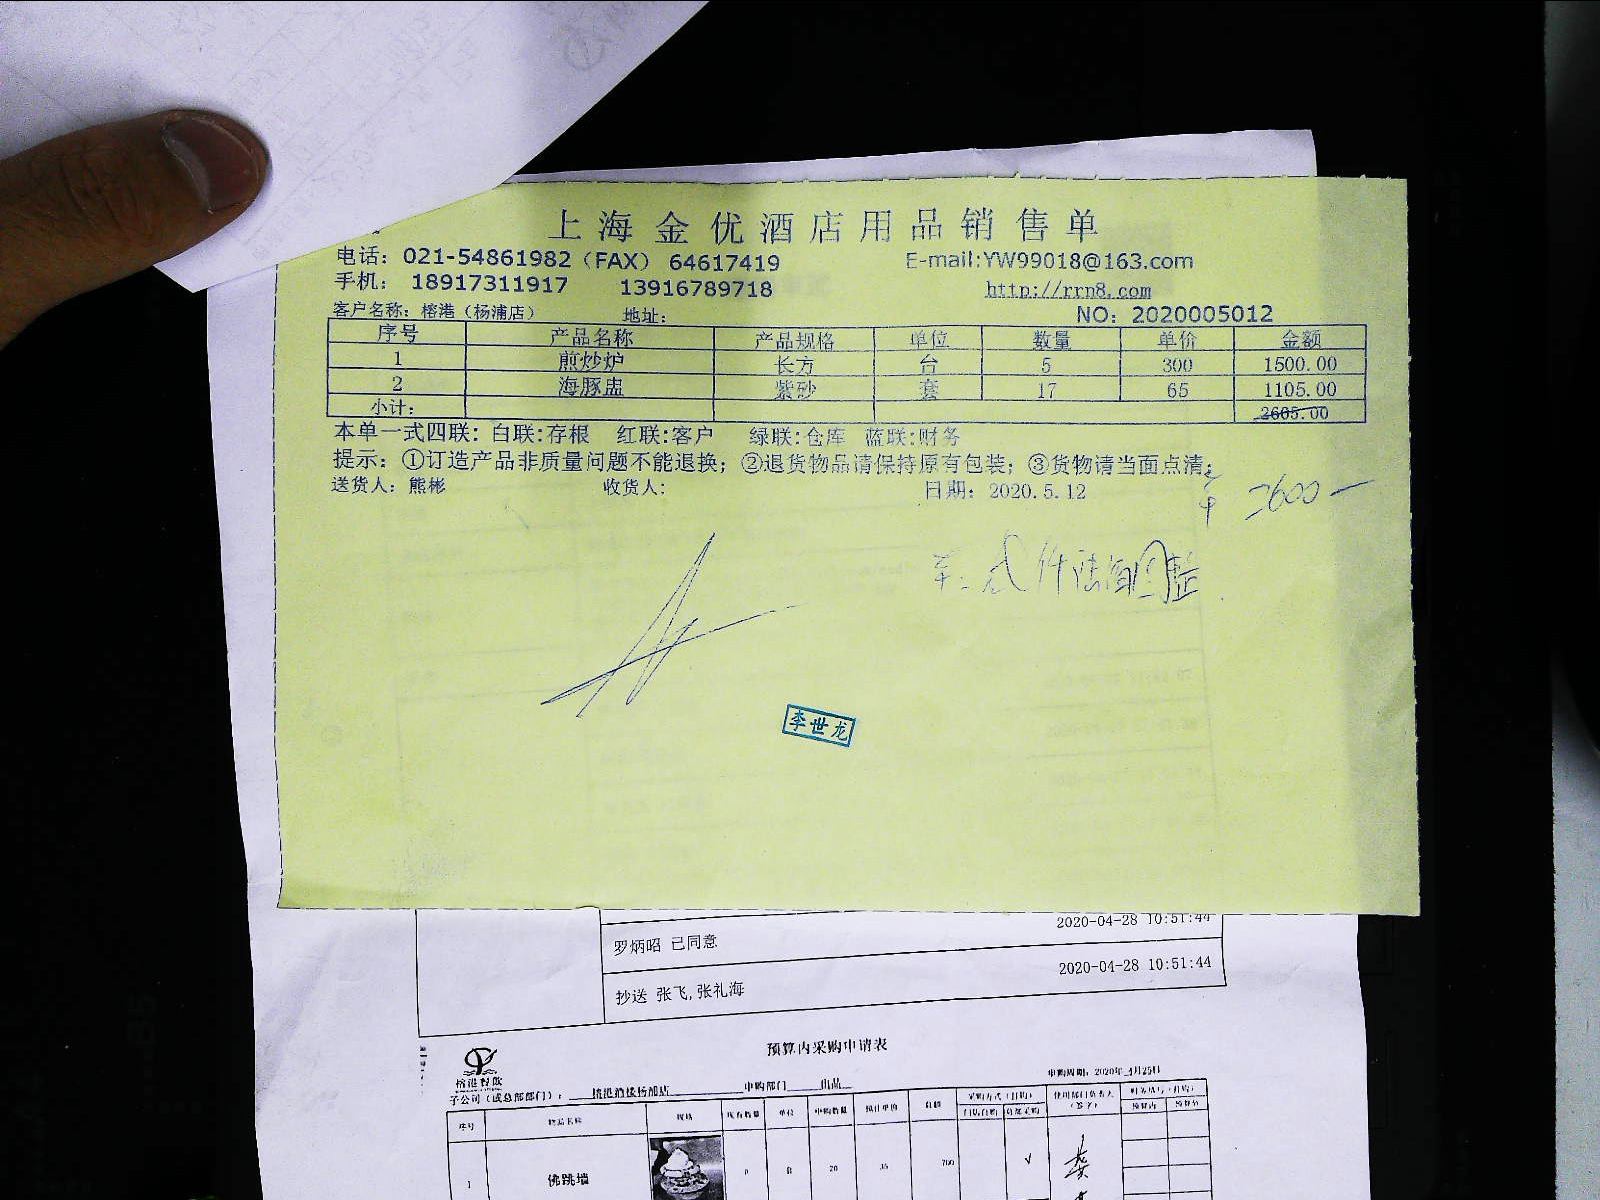 上海金优酒店用品销售单
电话：021-54861982（FAX） 64617419 E-mail:YW99018@163.com
手机： 18917311917 13916789718 http://rrn8.com
客户名称：榕港（杨浦店） 地址： NO：2020005012
序号 产品名称 产品规格 单位 数量 单价 金额
1 煎炒炉 长方 台 5 300 1500.00
2 海豚盅 紫砂 套 17 65 1105.00
小计： 2605.00
本单一式四联：白联:存根 红联:客户 绿联:仓库 蓝联:财务
提示：①订造产品非质量问题不能退换；②退货物品请保持原有包装；③货物请当面点清；
送货人：熊彬 收货人： 日期：2020.5.12
2600
李世龙
2020-04-28 10:51:44
罗炳昭 已同意
2020-04-28 10:51:44
抄送 张飞,张礼海
预算内采购申请表
榕港餐饮
申购周期：2020年4月25日
子公司（或总部部门）： 榕港酒楼杨浦店 申购部门 出品
序号 物品名称 规格 现有数量 单位 申购数量 预计单价 金额 采购方式（打钩） 使用部门负责人（签字）
门店自购 总部采购 预算内 预算外
1 佛跳墙 0 套 20 35 700 √